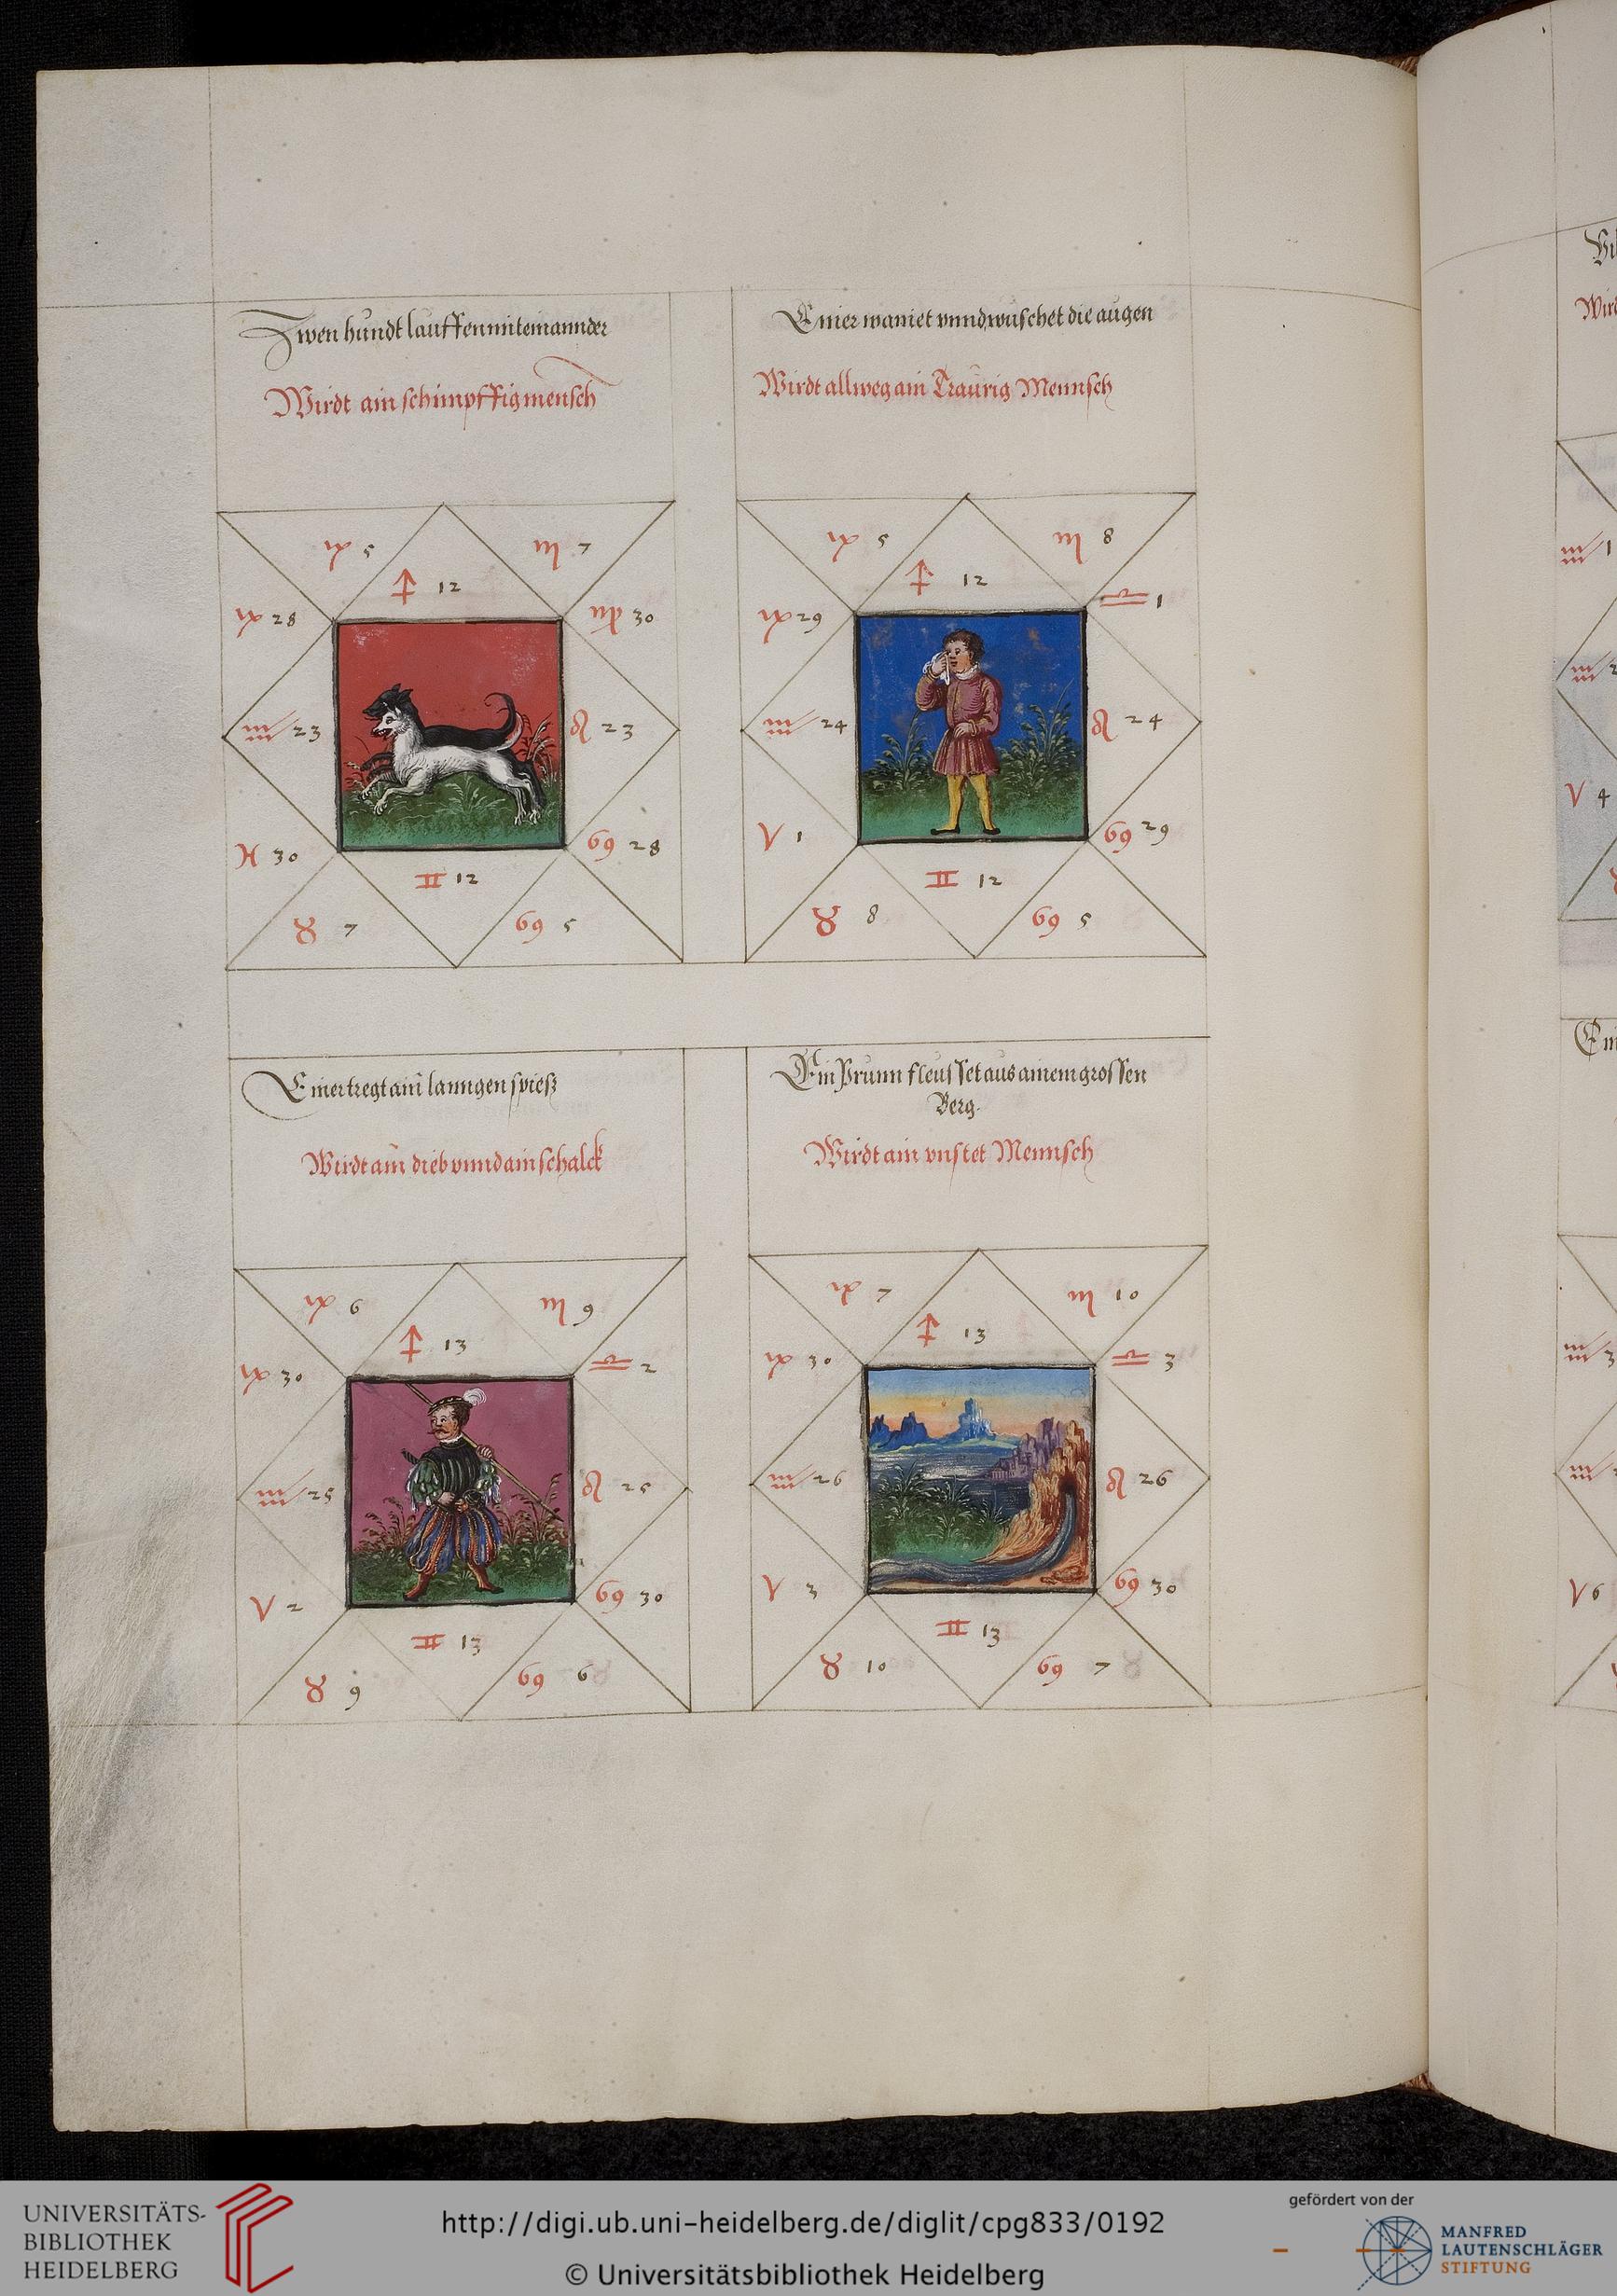 Zwen hundt lauffen miteinannder
Wirdt ain schimpffig mensch
♑ 5
♏ 7
♐ 12
♑ 28
♍ 30
♒ 23
♌ 23
♓ 30
♋ 28
♊ 12
♉ 7
♋ 5
Einer wainet vnnd wuschet die augen
Wirdt allweg ain Traurig Mennsch
♑ 5
♏ 8
♐ 12
♑ 29
♎ 1
♒ 24
♌ 24
♈ 1
♋ 29
♊ 12
♉ 8
♋ 5
Einer tregt ain lanngen spiesz
Wirdt ain dieb vnnd ain schalck
♑ 6
♏ 9
♐ 13
♑ 30
♎ 2
♒ 25
♌ 25
♈ 2
♋ 30
♊ 13
♉ 9
♋ 6
Ein Prunn fleusset aus ainem grossen
Berg.
Wirdt ain vnstet Mennsch
♑ 7
♏ 10
♐ 13
♑ 30
♎ 3
♒ 26
♌ 26
♈ 3
♋ 30
♊ 13
♉ 10
♋ 7
♒ 1
♈ 4
♈ 6
UNIVERSITÄTS-
BIBLIOTHEK
HEIDELBERG
http://digi.ub.uni-heidelberg.de/diglit/cpg833/0192
© Universitätsbibliothek Heidelberg
gefördert von der
MANFRED
LAUTENSCHLÄGER
STIFTUNG